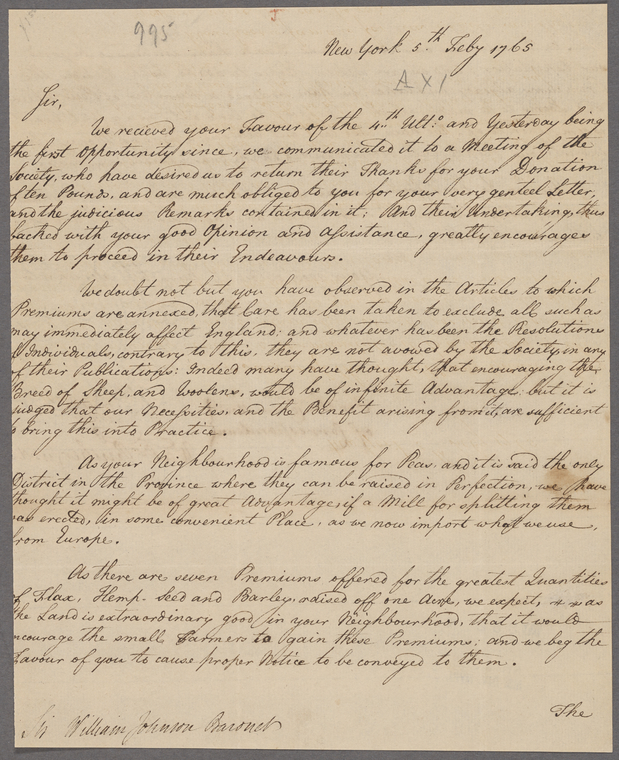 995
New York 5.th Feby 1765
A X 1
Sir,
We recieved your Favour of the 4.th Ult.o and Yesterday being
the first Opportunity since, we communicated it to a Meeting of the
Society, who have desired us to return their Thanks for your Donation
of ten Pounds, and are much obliged to you for your very genteel Letter,
and the judicious Remarks contained in it: And their Undertaking, thus
backed with your good Opinion and Assistance, greatly encourages
them to proceed in their Endeavours.
We doubt not but you have observed in the Articles to which
Premiums are annexed, that Care has been taken to exclude all such as
may immediately affect England; and whatever has been the Resolutions
of Individuals, contrary to this, they are not avowed by the Society, in any
of their Publications: Indeed many have thought, that encouraging the
Breed of Sheep, and Woolens, would be of infinite Advantage, but it is
judged that our Necessities, and the Benefit arising from it, are sufficient
to bring this into Practice.
As your Neighbourhood is famous for Peas, and it is said the only
District in the Province where they can be raised in Perfection, we have
thought it might be of great Advantage, if a Mill for splitting them
was erected, in some convenient Place, as we now import what we use,
from Europe.
As there are seven Premiums offered for the greatest Quantities
of Flax, Hemp-Seed and Barley, raised off one Acre, we expect, as
the Land is extraordinary good in your Neighbourhood, that it would
encourage the small Farmers to gain these Premiums: and we beg the
Favour of you to cause proper Notice to be conveyed to them.
The
Sir William Johnson Baronet